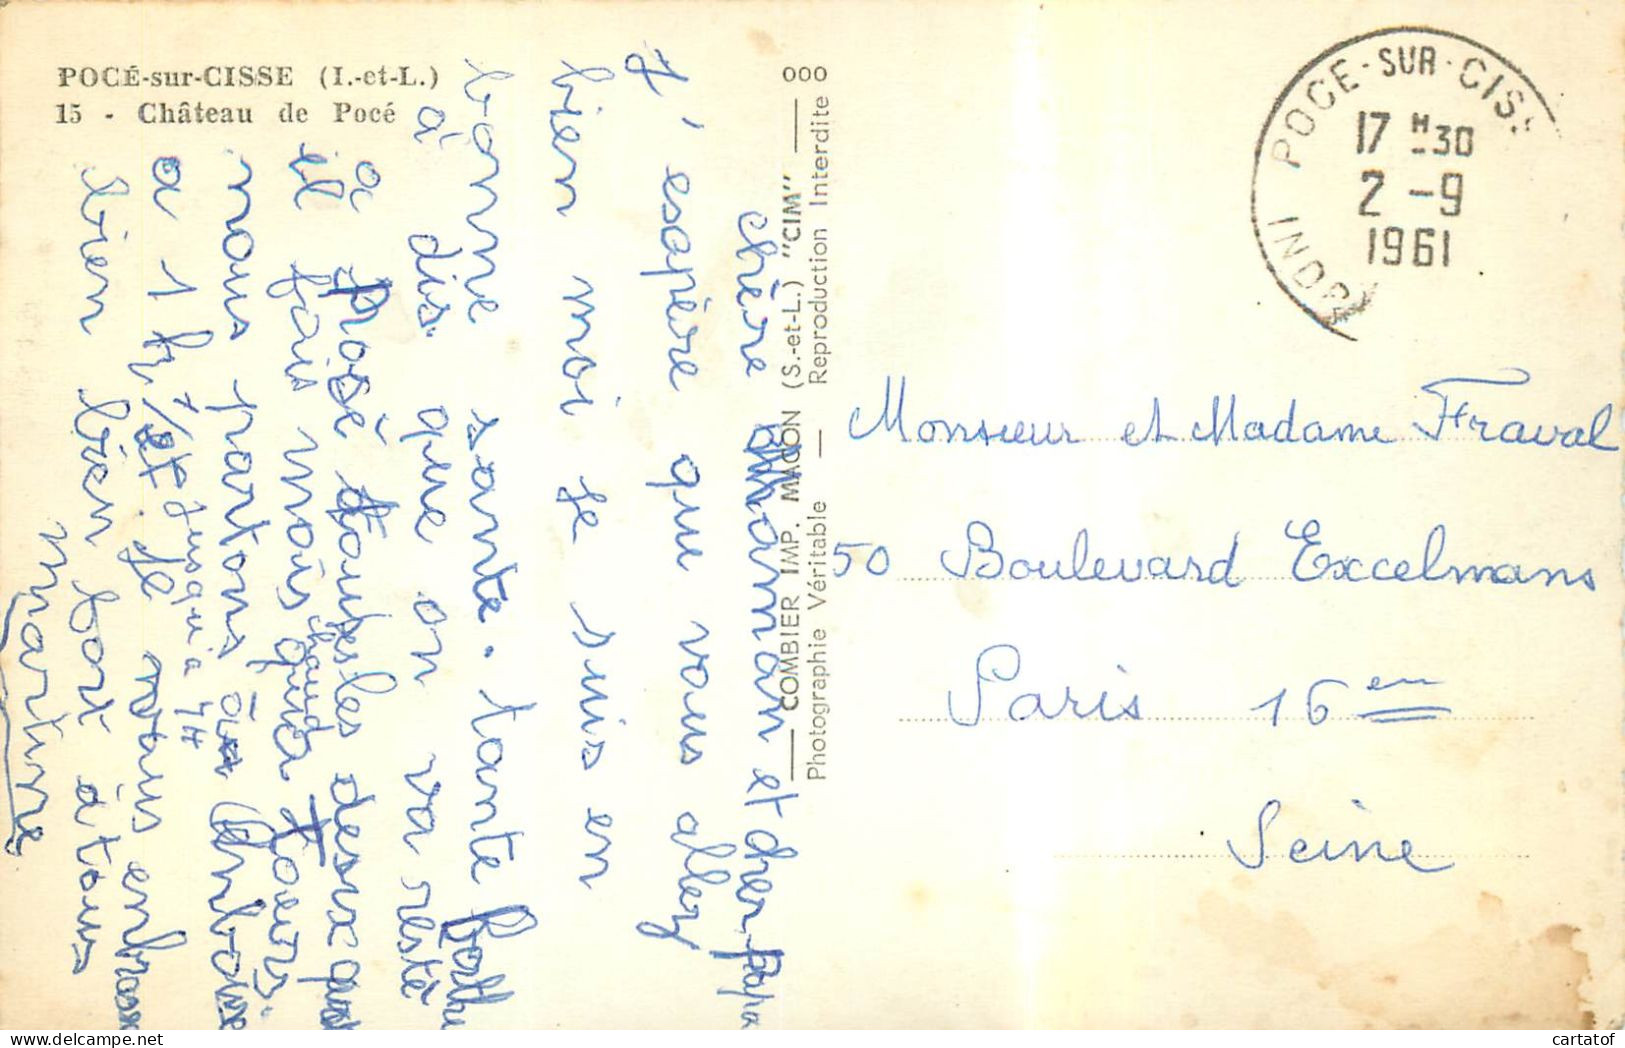 POCÉ-sur-CISSE (I.-et-L.)
15 - Château de Pocé
chère maman et cher papa
J'espère que vous allez
bien moi je suis en
bonne sante. tante
à dis que on va resté
a Posé toutes les desix
il fais mois chaud qu'a Tours.
nous partons à Anboise
a 1 h 1/2 et jusqu'a 7H
Je vous enbrasse
bien bien fort à tous
martine
COMBIER IMP. MACON (S.-et-L.) "CIM" 000
Photographie Véritable — Reproduction Interdite
POCE-SUR-CISS
17 H 30
2 -9
1961
INDRE
Monsieur et Madame Fraval
50 Boulevard Excelmans
Paris 16 em
Seine
cartatof